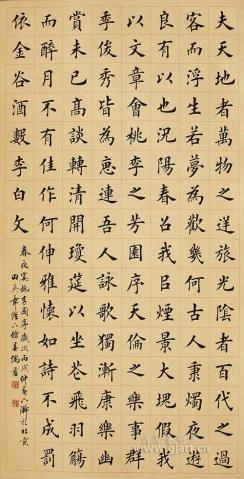 夫天地者萬物之逆旅光陰者百代之過
客而浮生若夢為歡幾何古人秉燭夜遊
良有以也況陽春召我以煙景大塊假我
以文章會桃李之芳園序天倫之樂事群
季俊秀皆為惠連吾人詠歌獨慚康樂幽
賞未已高談轉清開瓊筵以坐花飛羽觴
而醉月不有佳作何伸雅懷如詩不成罰
依金谷酒數李白文
春夜宴桃李園序歲次丙戌仲夏於北京
田英章書